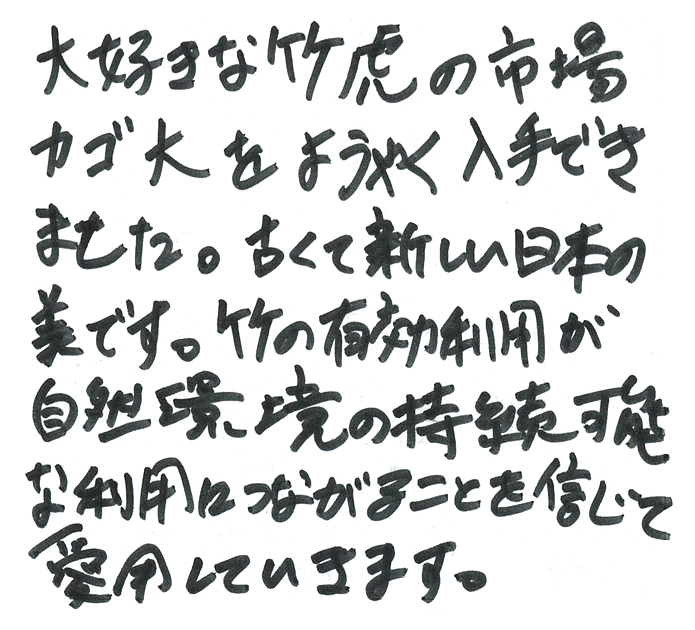 大好きな竹虎の市場
カゴ大をようやく入手でき
ました。古くて新しい日本の
美です。竹の有効利用が
自然環境の持続可能
な利用につながることを信じて
愛用していきます。